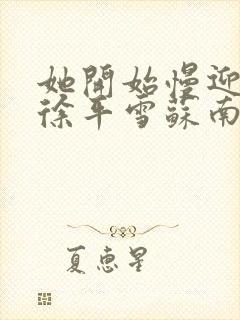 她開始慢迎
徐平雪蘇南
夏惠星